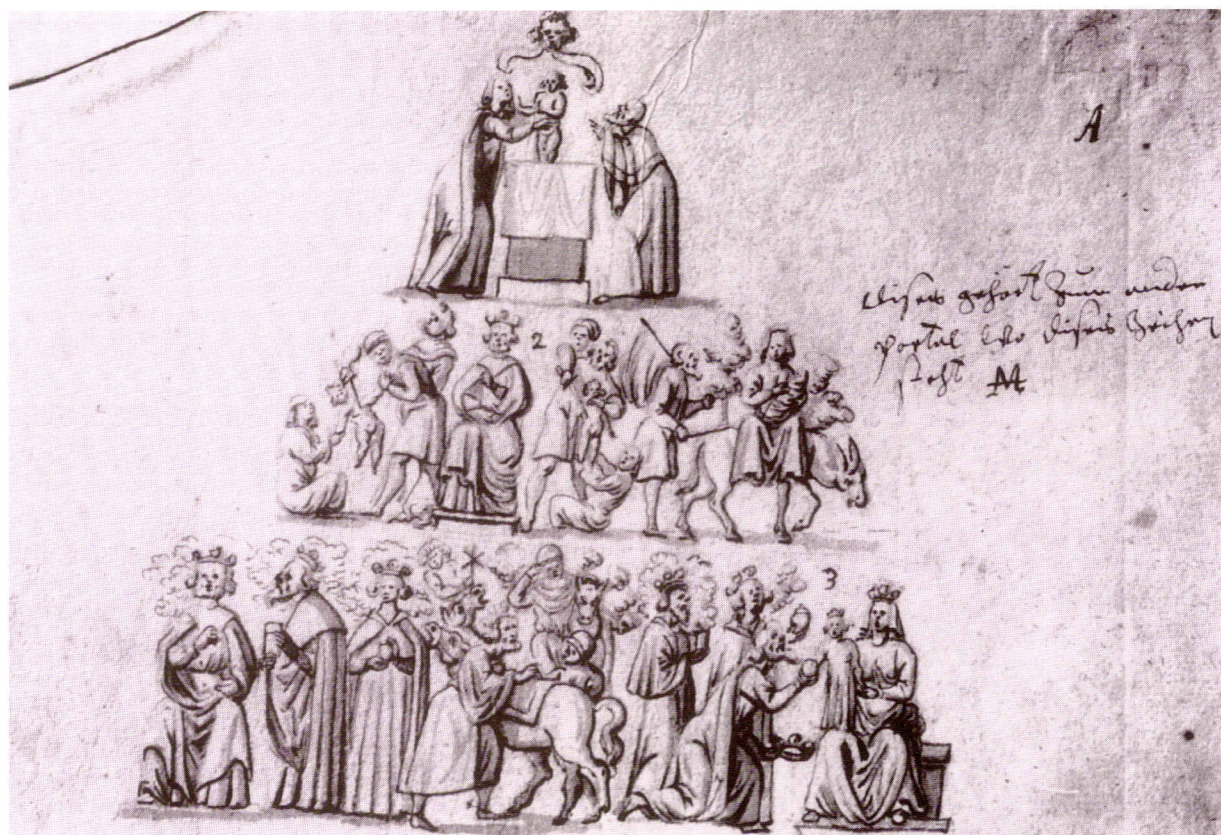 A
dises gehört zum ander
portal wo dises Zeichen
steht M
2
3